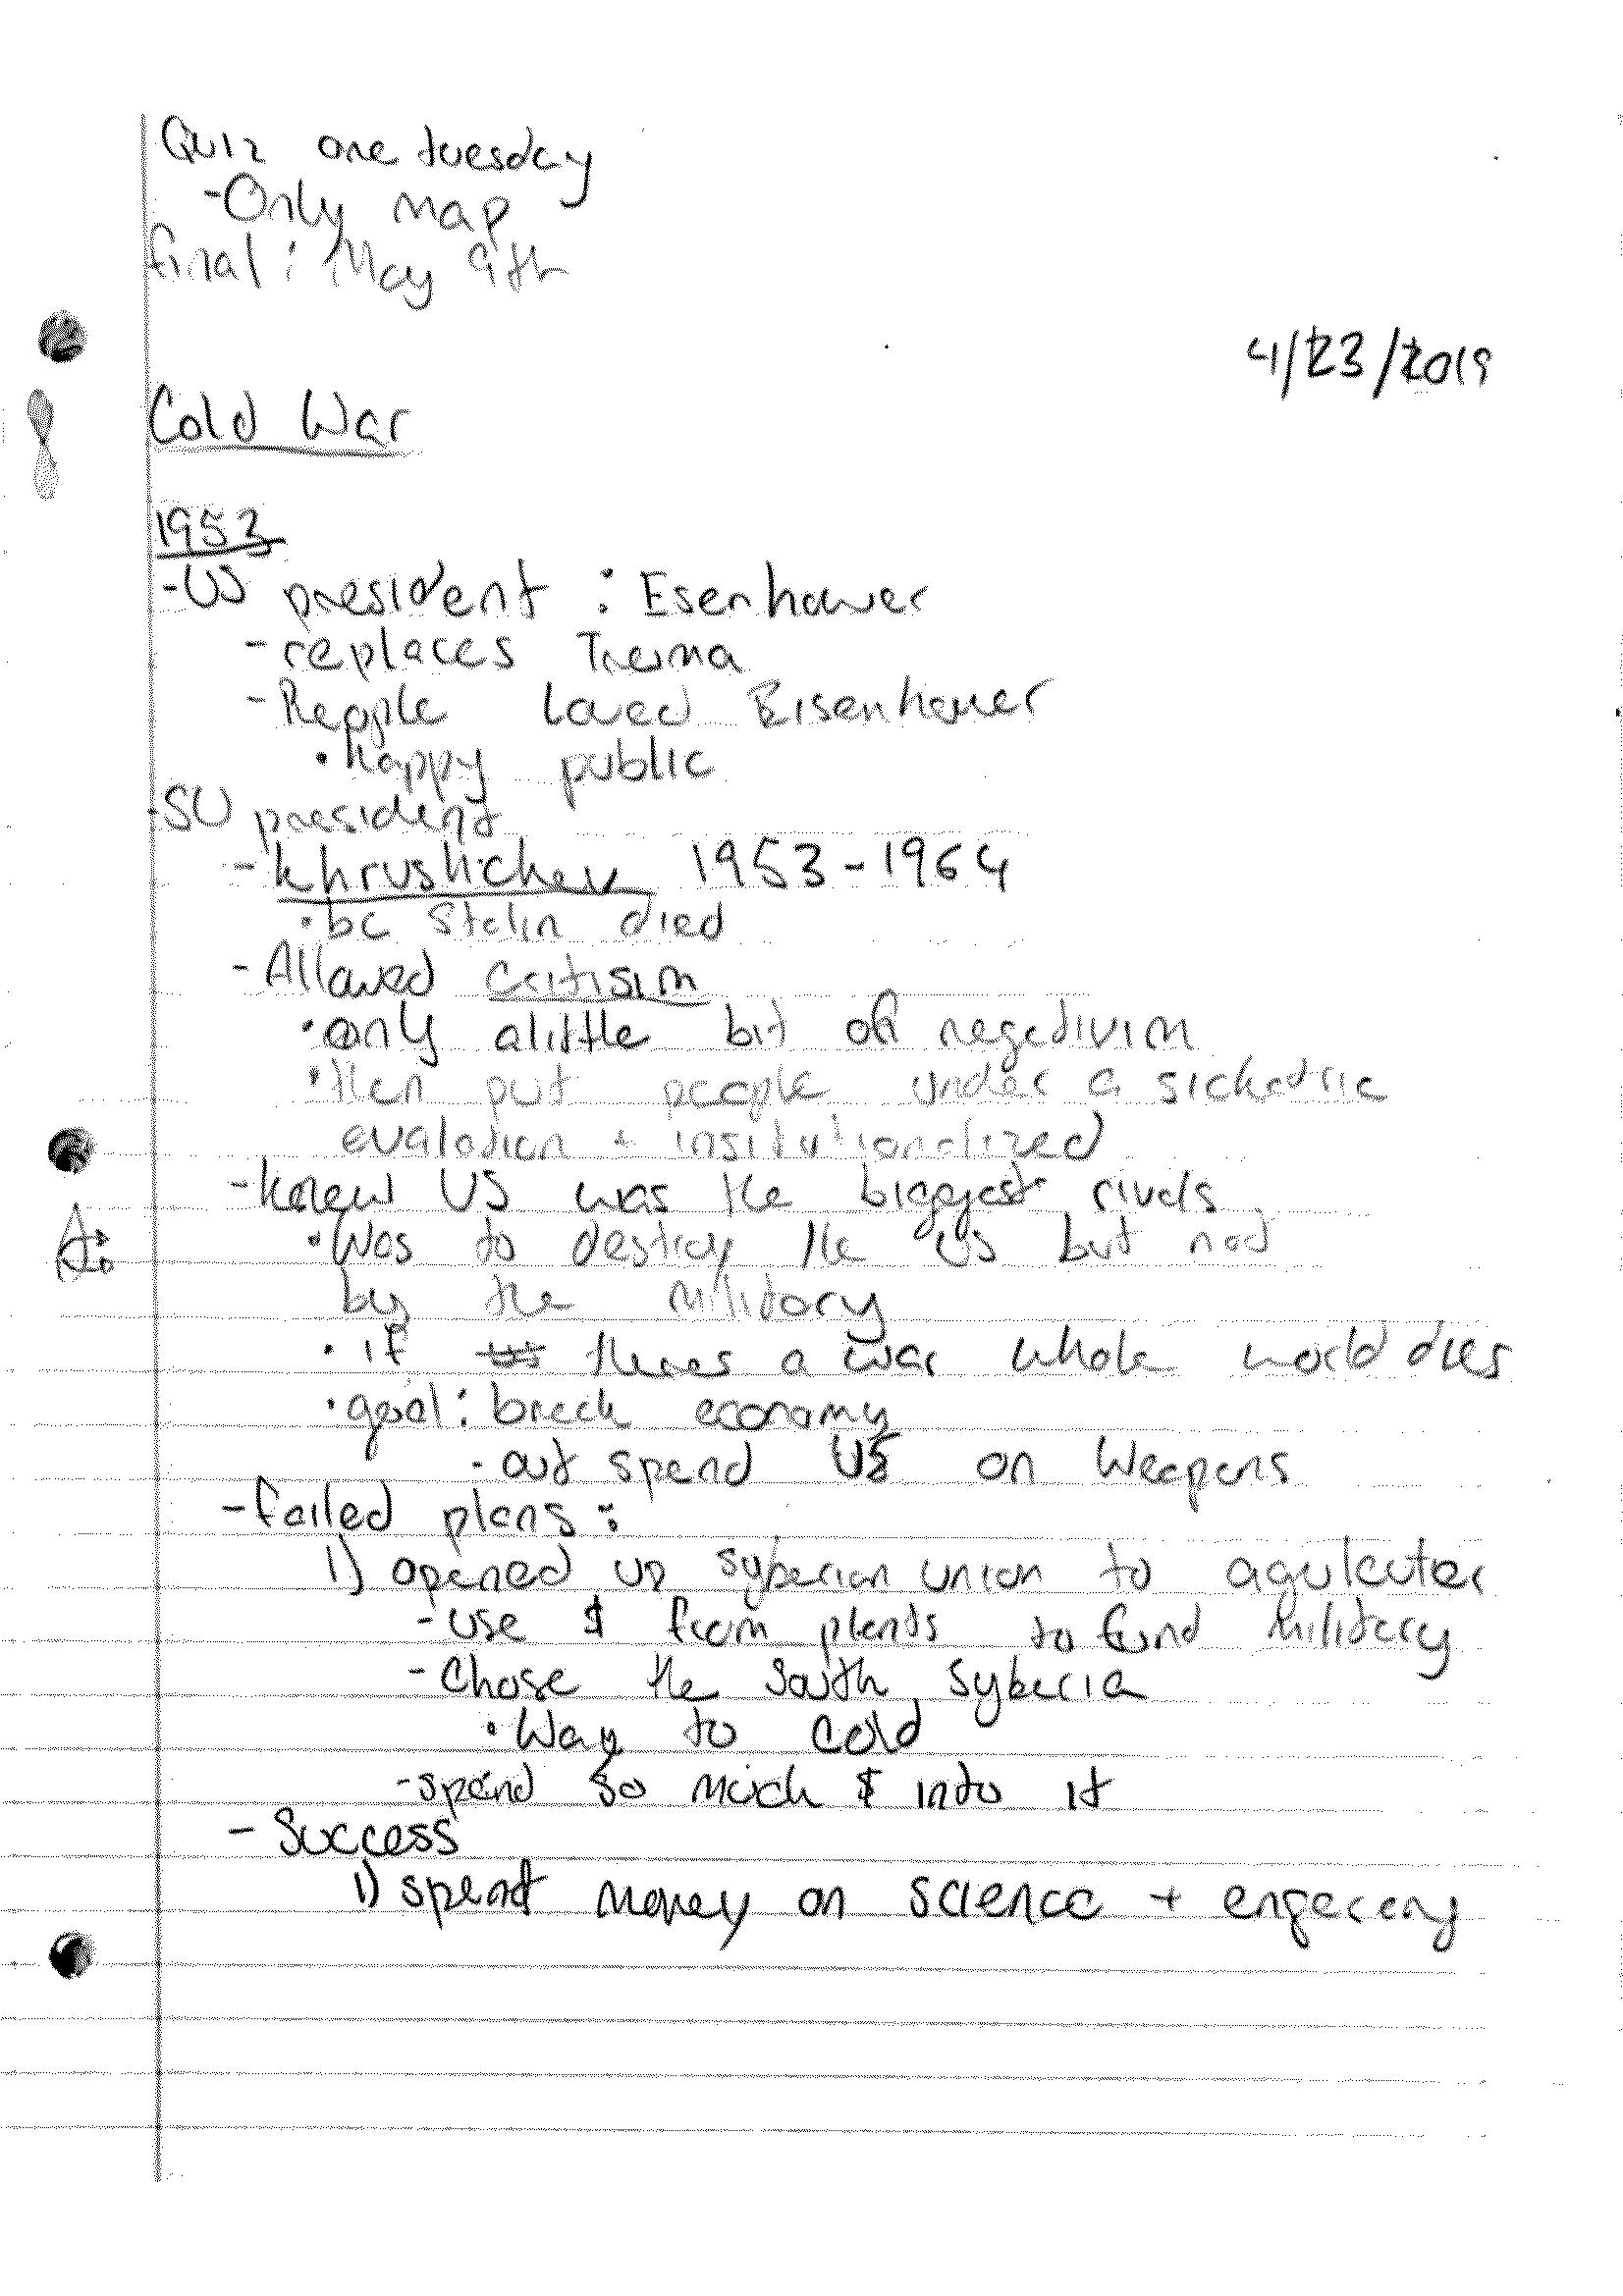 Quiz one tuesday
-Only map
final: May 9th
4/23/2019
Cold War
1953
-US president : Esenhower
-replaces Truma
-People loved Eisenhower
•happy public
-SU president
-Khrushichev 1953-1964
•bc Stalin died
-Allowed Critisim
•only alittle bit of negetivim
•then put people under a sickatric
evalation + insitutionalized
-knew US was the biggest rivals
•Was to destroy the US but not
by the military
•if us theres a war whole world dies
•goal: break economy
- out spend US on Weapons
-failed plans:
1) opened up syberian union to agulcuter
-use $ from plants to fund military
-Chose the South Syberia
•Way to cold
-spend so much $ into it
- Success
1) spent money on science + engereny